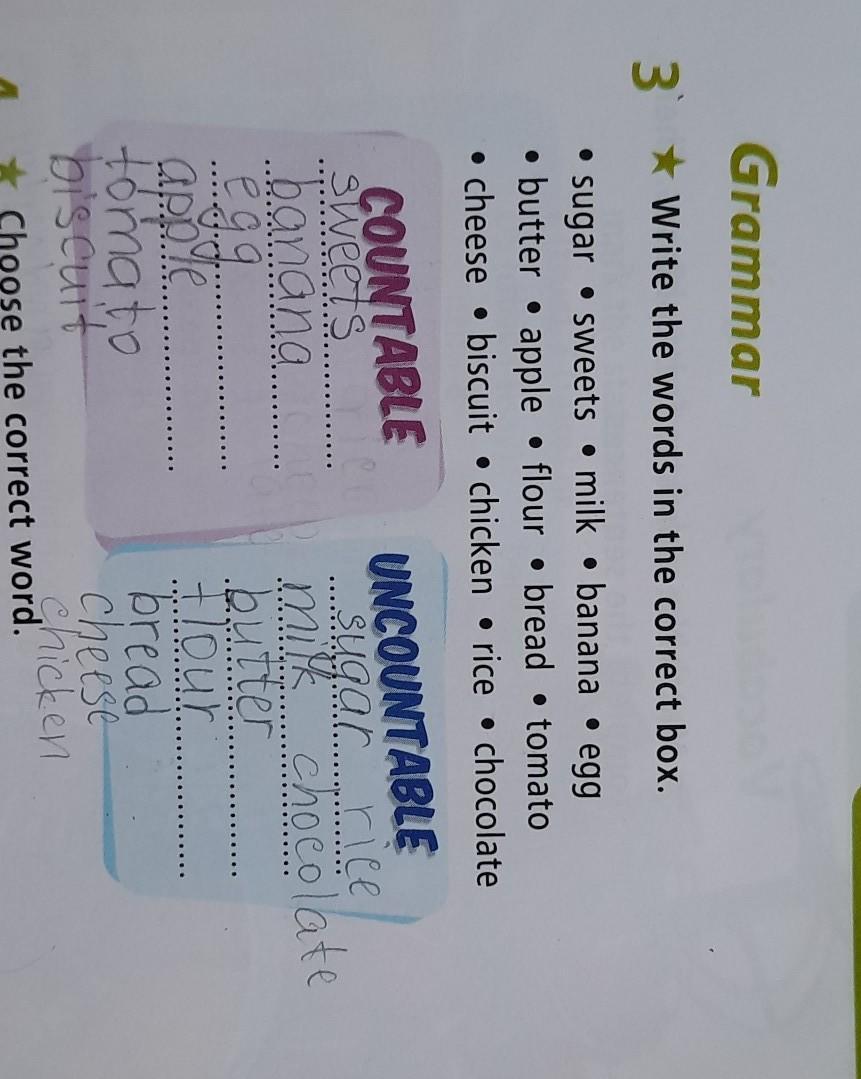 Grammar
3 ★ Write the words in the correct box.
• sugar • sweets • milk • banana • egg
• butter • apple • flour • bread • tomato
• cheese • biscuit • chicken • rice • chocolate
COUNTABLE
sweets
banana
egg
apple
tomato
biscuit
UNCOUNTABLE
sugar rice
milk chocolate
butter
flour
bread
cheese
chicken
4 ★ Choose the correct word.